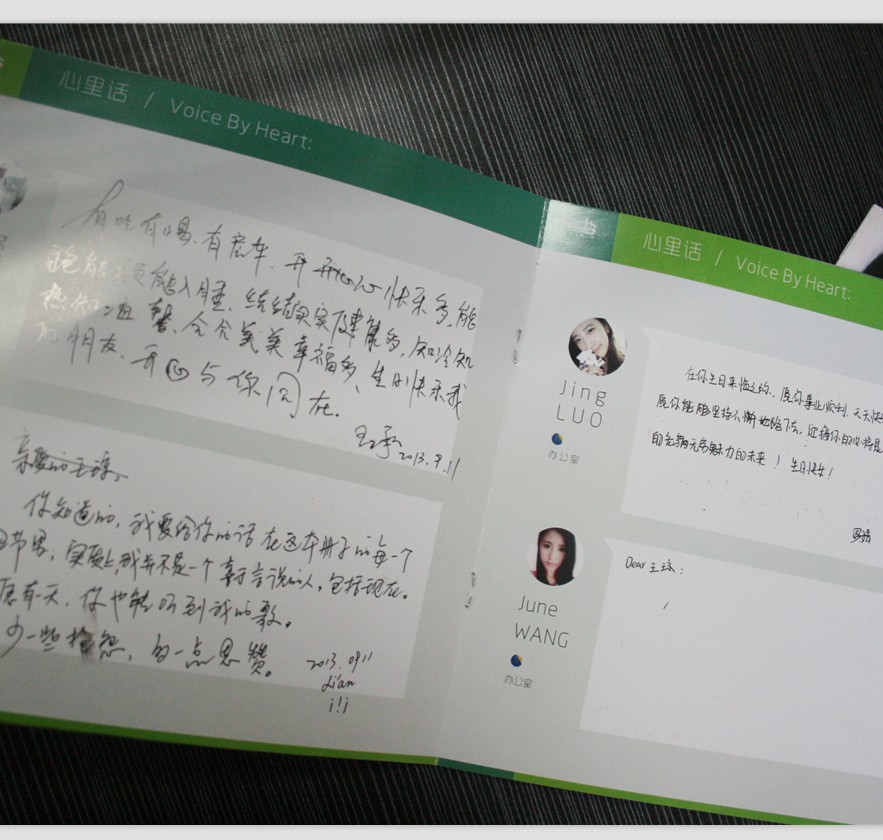 心里话 / Voice By Heart:
有吃有喝、有房车、开开心心快乐多,能
跑能
入睡、结结实实健康多,知冷知
热知温馨、合合美美幸福多、生日快乐我
的朋友、开心与你同在。
2013.9.11
亲爱的王琼。
你知道的,我要给你的话在这本册子的每一个
节里,实际上,我并不是一个喜于言说的人,包括现在。
愿有一天,你也能听到我的歌。
少一些抱怨,多一点恩赞。
2013.0911
Jian
心里话 / Voice By Heart:
Jing
LUO
办公室
在你生日来临之际,愿你事业顺利、天天快
愿你能
的充满无穷魅力的未来!生日快乐!
罗精
June
WANG
办公室
Dear 王琼: